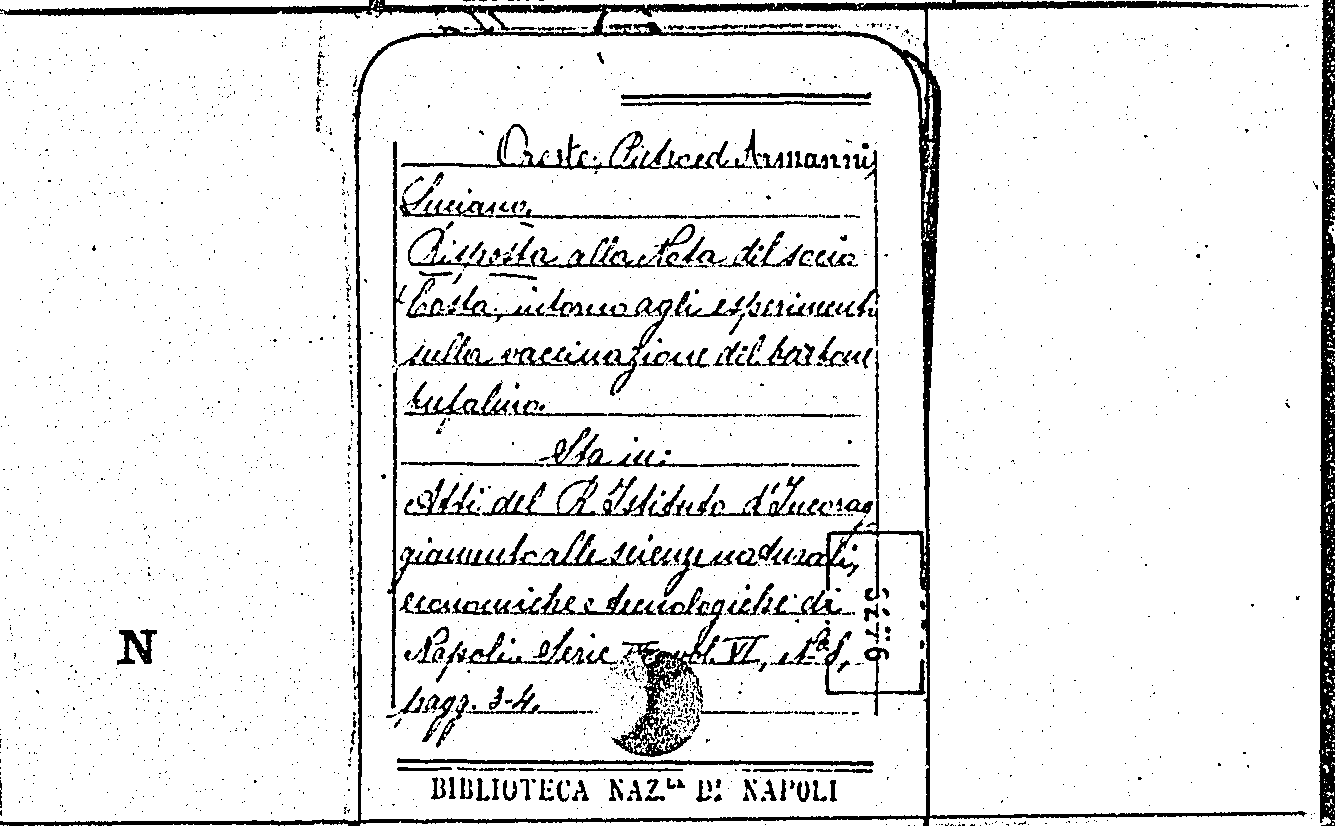 Oreste, Pietro ed Armanni,
Luciano.
Risposta alla Nota del socio
Costa, intorno agli esperimenti
sulla vaccinazione del barbone
bufalino.
Sta in:
Atti del R. Istituto d'Incorag
giamento alle scienze naturali,
economiche e tecnologiche di
Napoli. Serie vol. VI, N.º 8,
pagg. 3-4.
N
BIBLIOTECA NAZ.LA DI NAPOLI